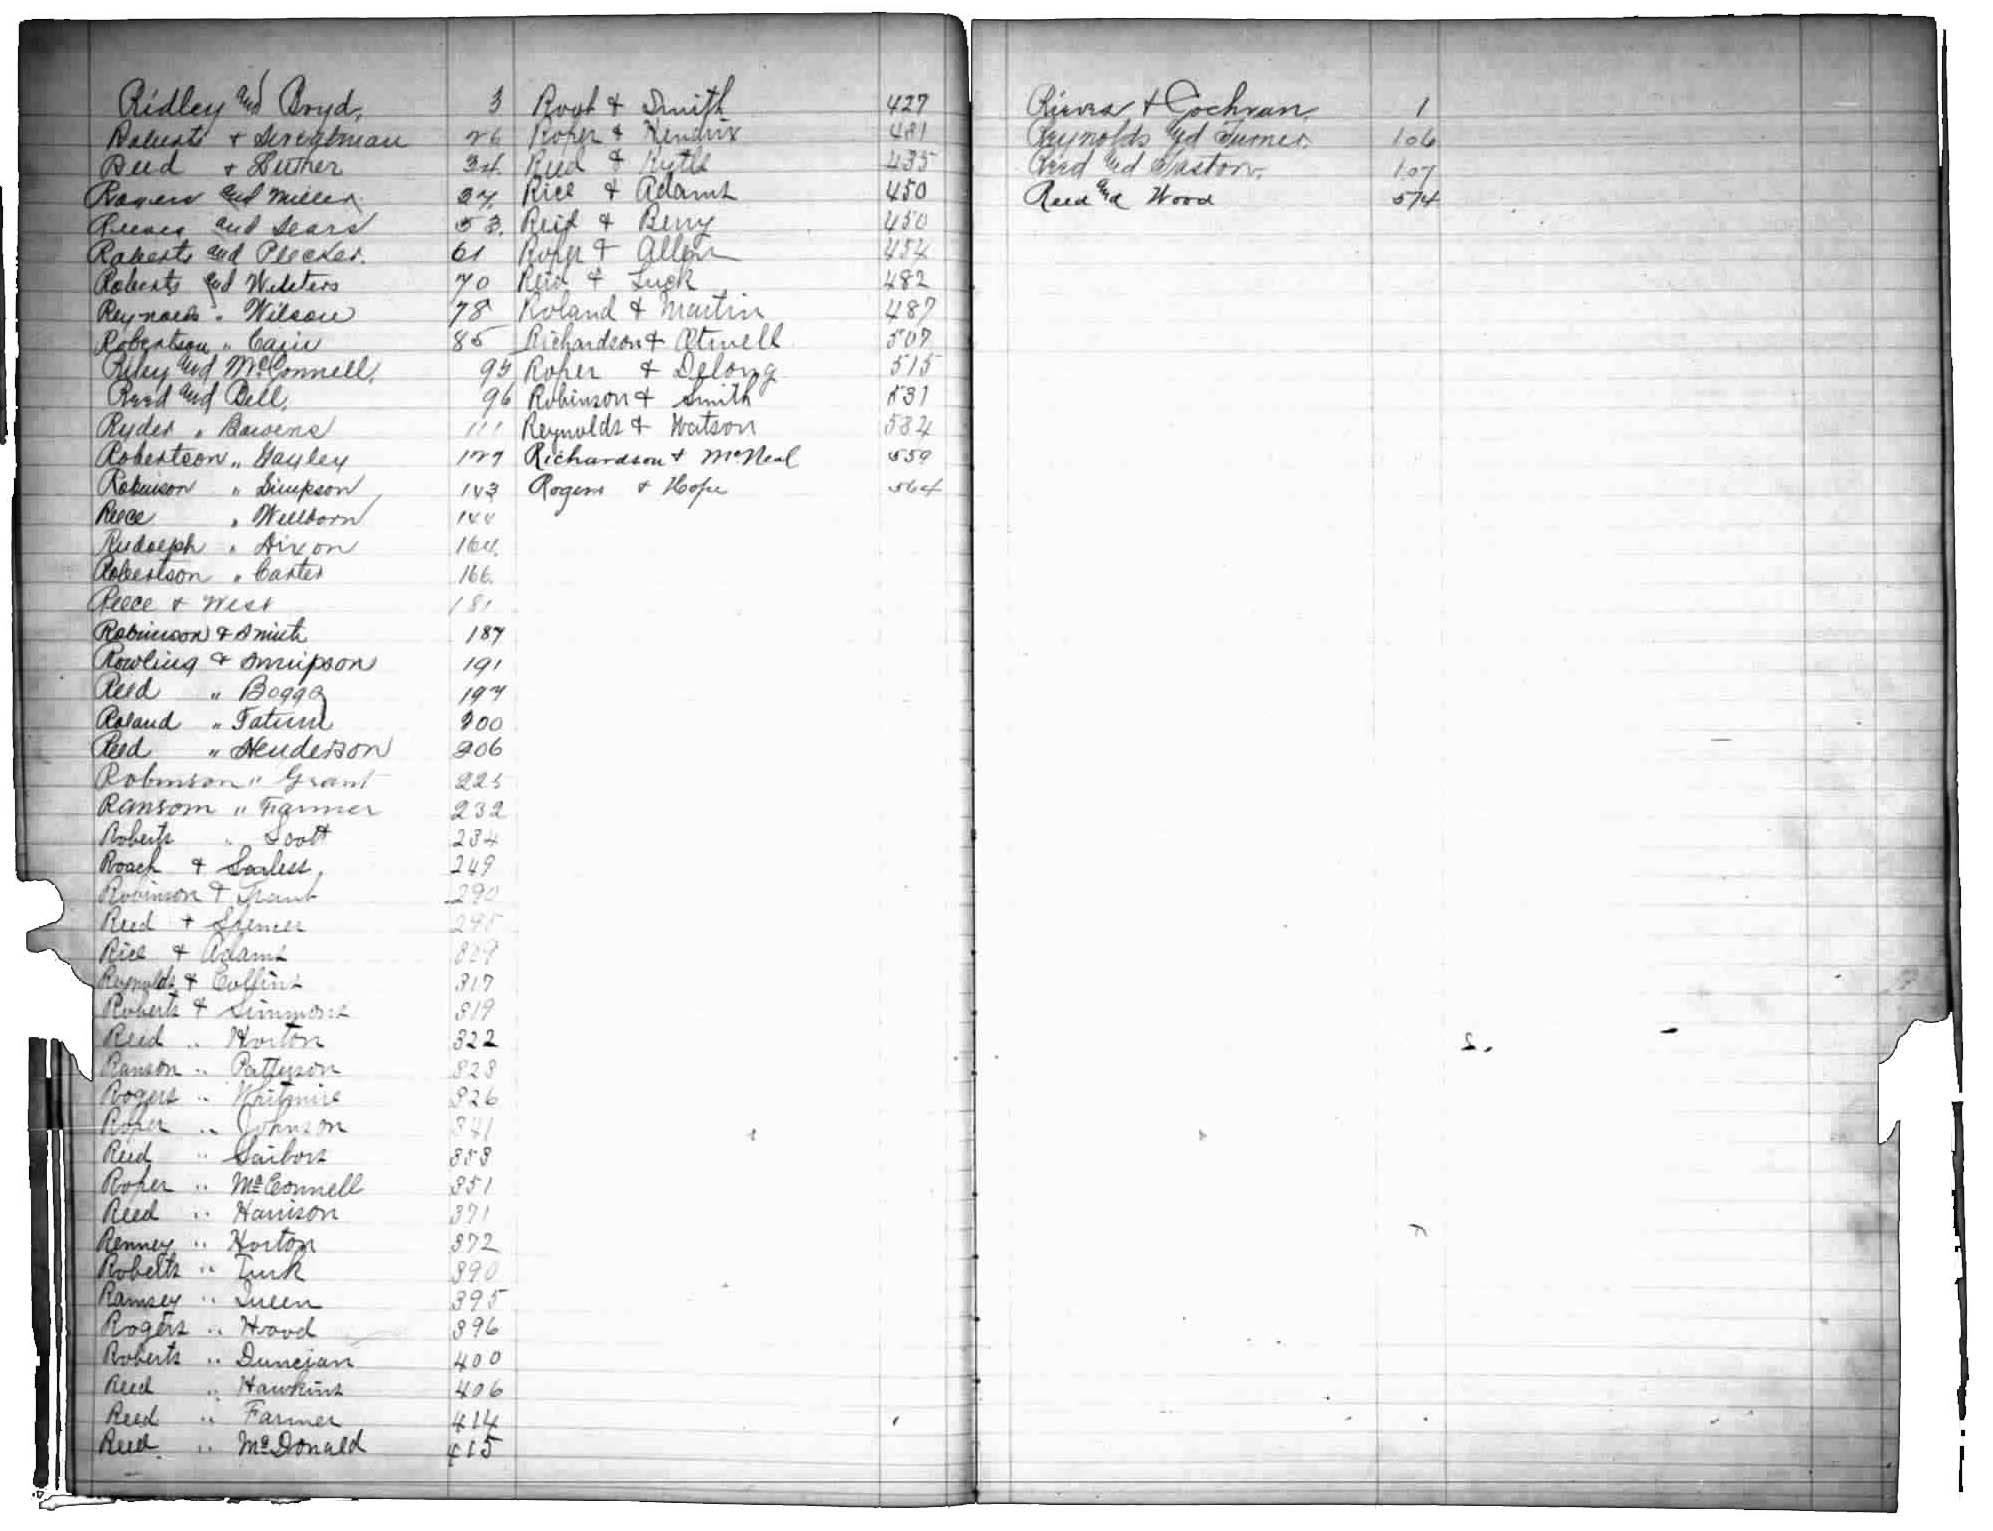 Ridley and Boyd, 3
Roberts & 26
Reed & Luther 34
and Miller 37
Reeves and Sears 53
Roberts and Plecker. 61
Roberts and Websters 70
Reynolds " Wilson 78
Robertson " Cain 85
Riley and McConnell, 95
Reed and Bell, 96
Ryder " Bowens 111
Robertson " Gayley 127
Robinson " Simpson 143
Reece " Wellborn 144
Rudolph " Dixon 164
Robertson " Carter 166
Reece & West 181
Robinson & Smith 187
Rowling & Simpson 191
Reed " Boggs 197
Roland " Tatum 200
Reed " Henderson 206
Robinson " Grant 225
Ransom " Farmer 232
Roberts " Scott 234
Roach & 249
Robinson & Grant 290
Reed & Spencer 295
Rice & Adams 309
Reynolds & Collins 317
Roberts & Simmons 319
Reed " Horton 322
Ranson " Patterson 323
Rogers " Whitmire 326
Roper " Johnson 341
Reed " 353
Roper " McConnell 351
Reed " Harrison 371
Renney " Horton 372
Roberts " Turk 390
Ramsey " Queen 395
Rogers " Wood 396
Roberts " Duncan 400
Reed " Hawkins 406
Reed " Farmer 414
Reed " McDonald 415
& Smith 427
Roper & Hendrix 431
Reed & Kytle 435
Rice & Adams 450
Reid & Berry 450
Roper & Allen 454
Reid & Luck 482
Roland & Martin 487
Richardson & Atwell 507
Roper & Delong 515
Robinson & Smith 531
Reynolds & Watson 534
Richardson & McNeal 559
Rogers & Hope 564
& Cochran 1
Reynolds and Turner. 106
Reid and Gaston. 107
Reed and Wood 574